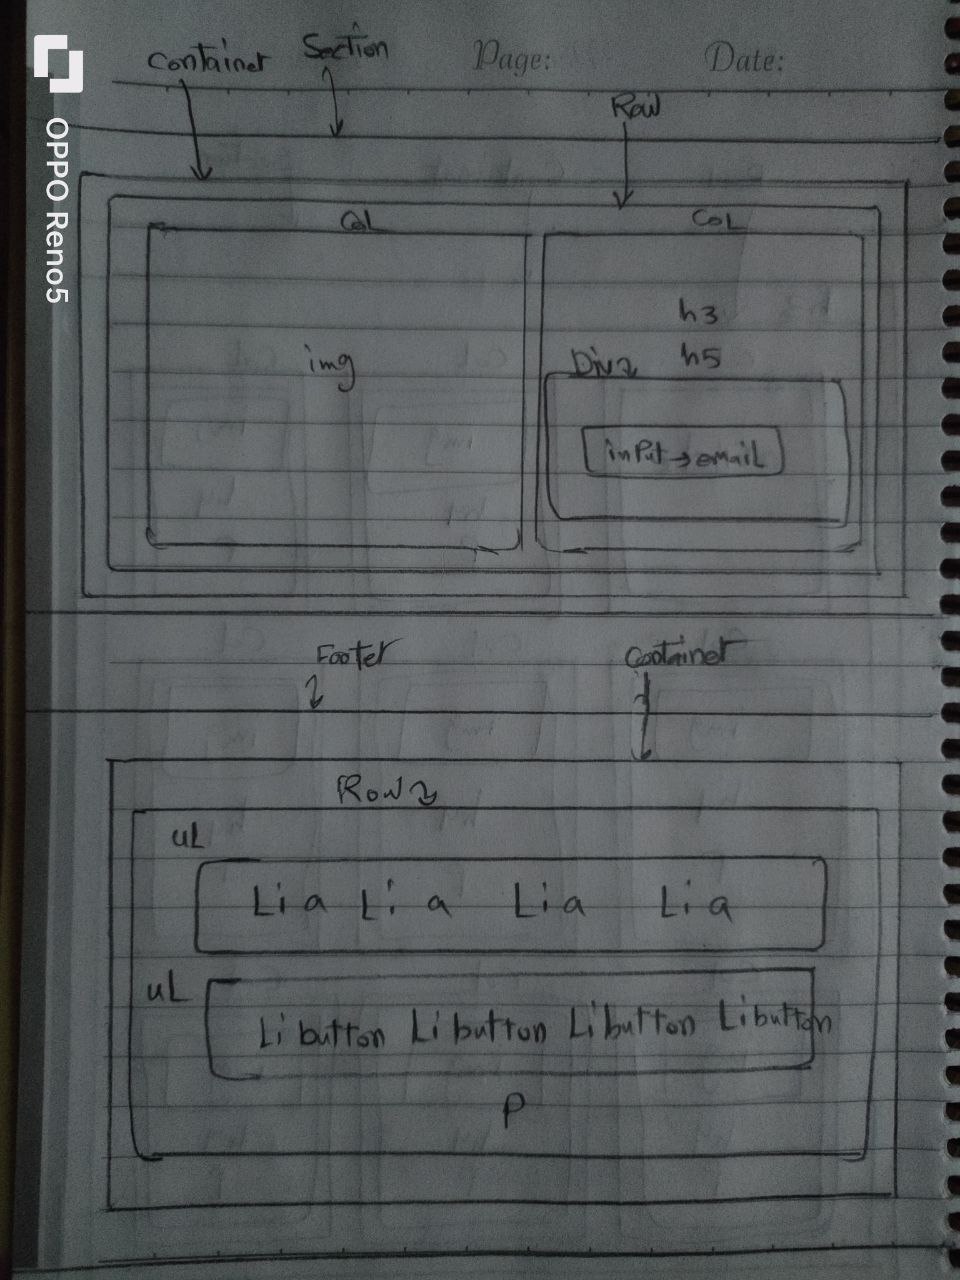 Container Section Page: Date:
Row
OPPO Reno5
Col Col
h3
img h5
Div
input → email
Footer Container
Row
uL
Li a Li a Li a Li a
uL
Li button Li button Li button Li button
P